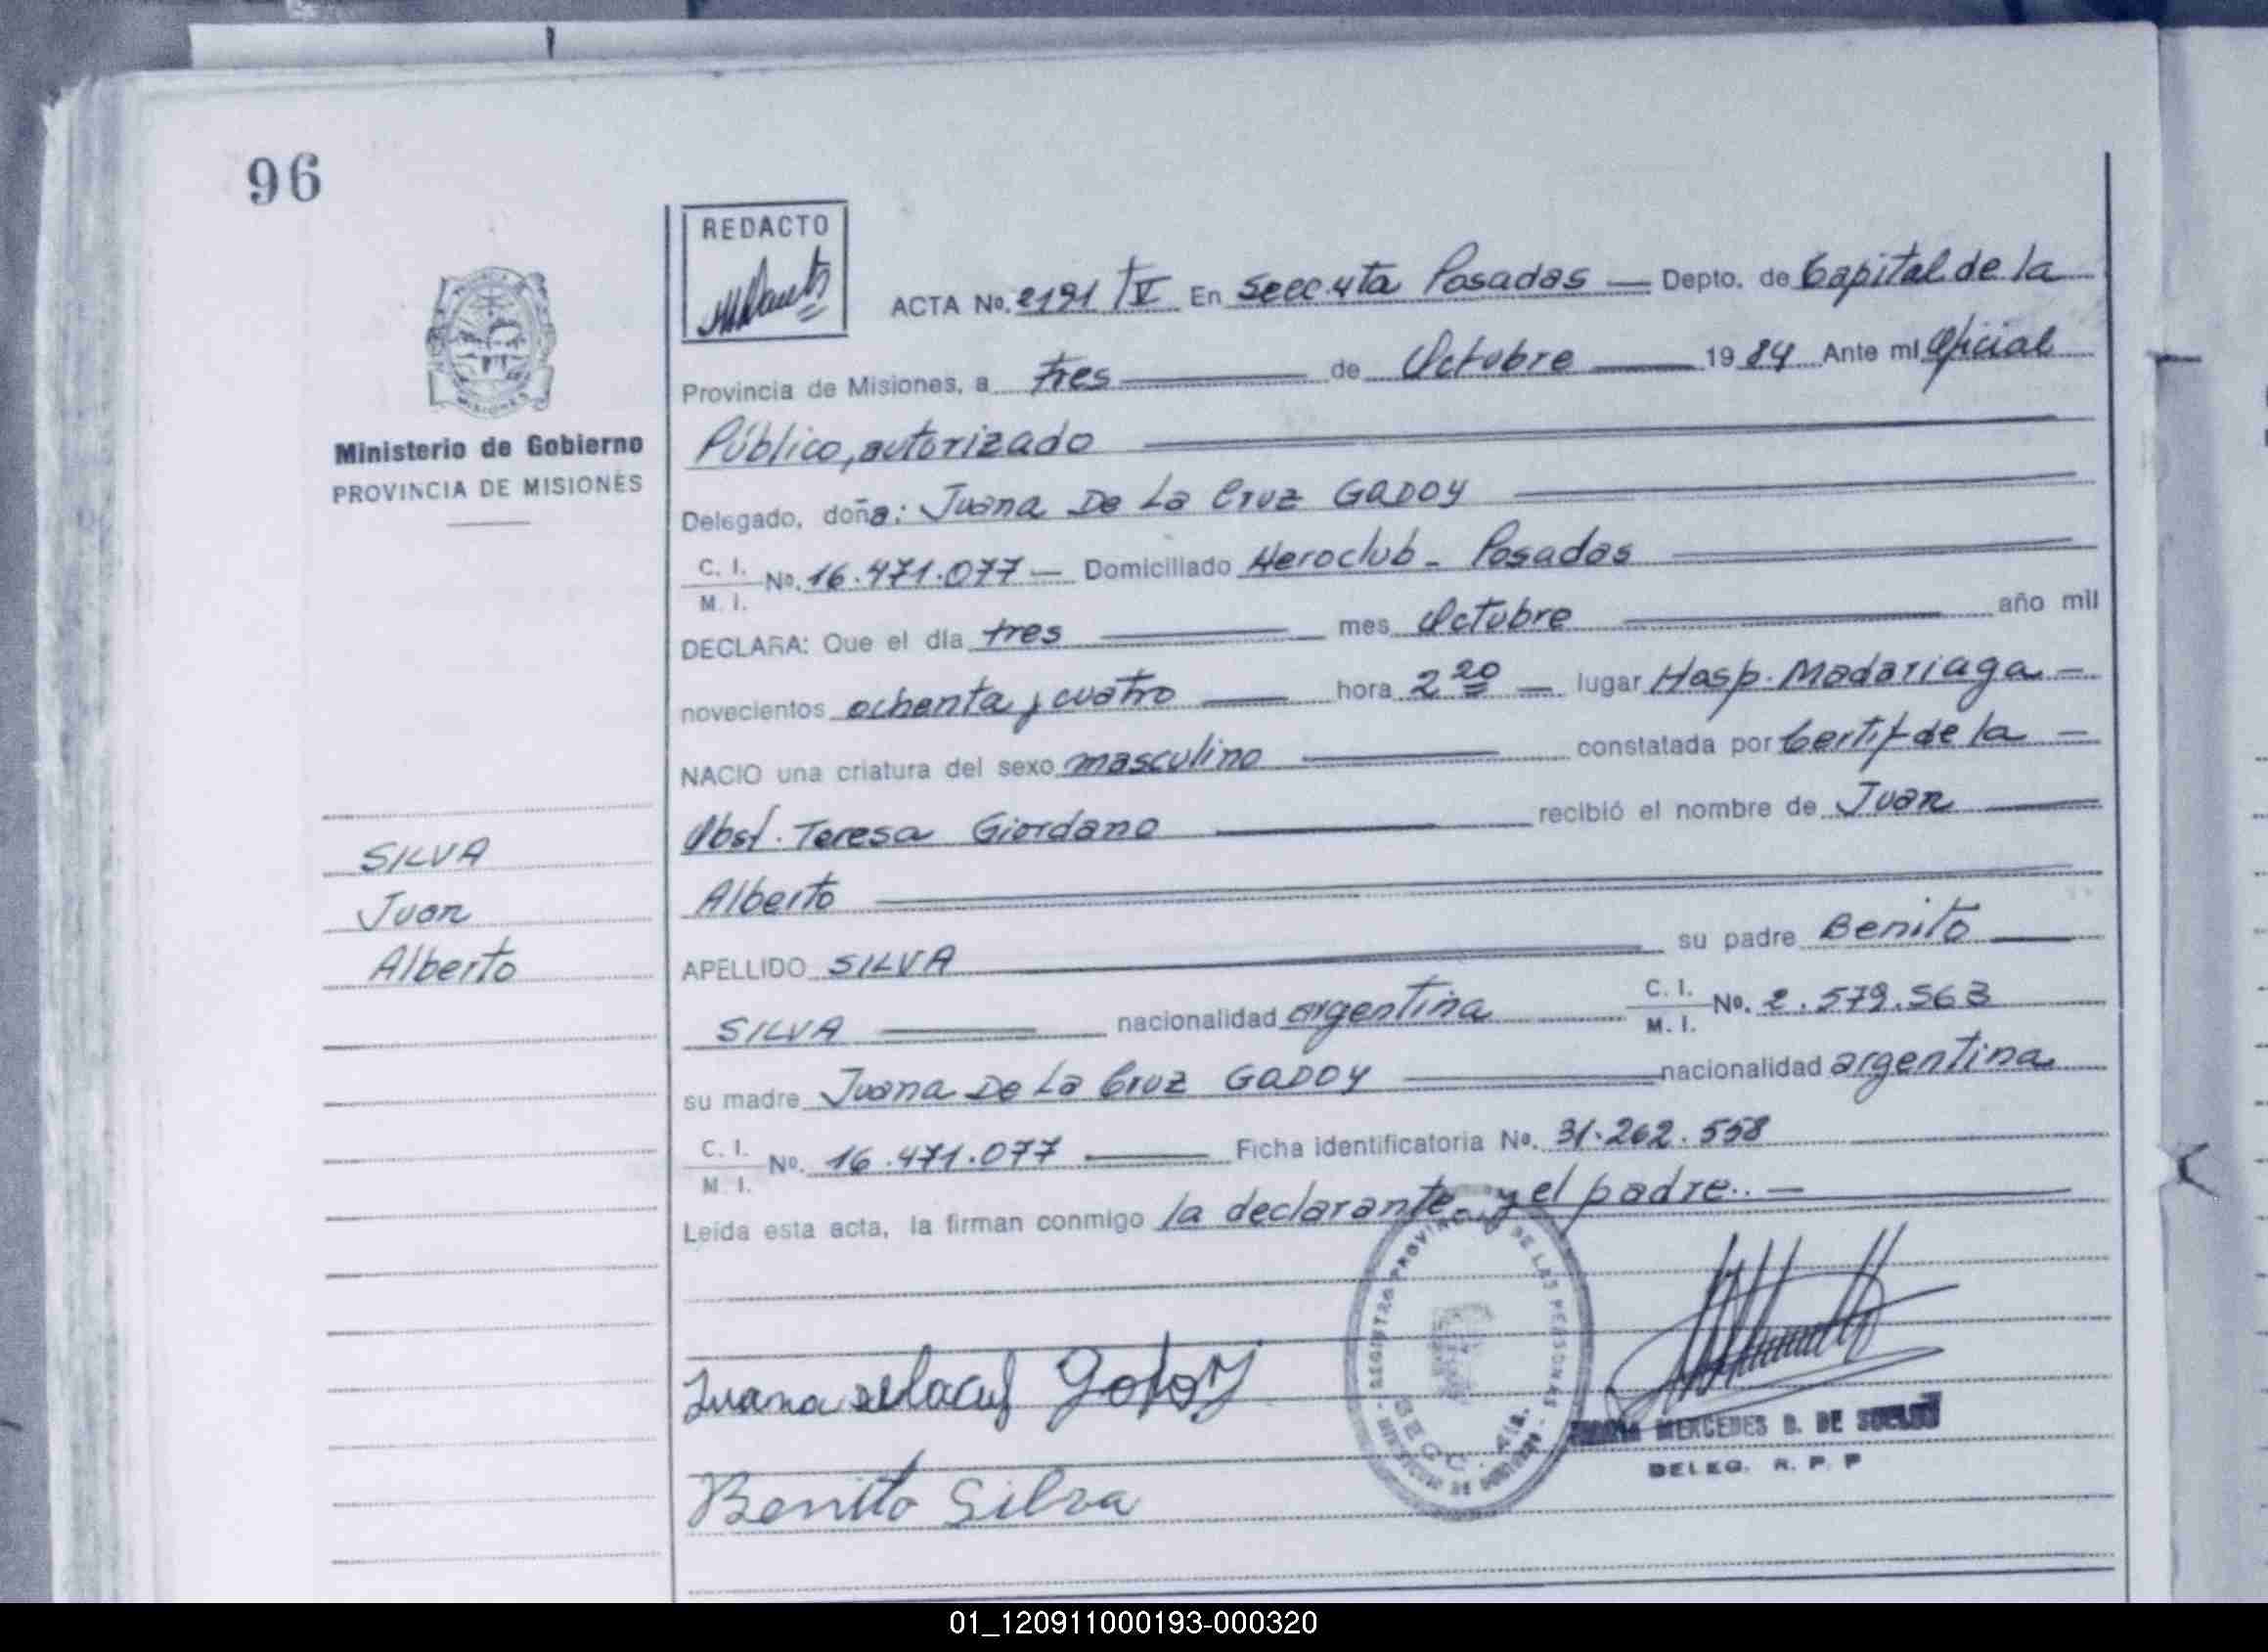 96
REDACTO
ACTA No. 2191 TV En Secc 4ta Posadas — Depto. de Capital de la
Provincia de Misiones, a tres de Octubre 1984 Ante mi Oficial
Ministerio de Gobierno
PROVINCIA DE MISIONES
Público, autorizado
Delegado, doña: Juana De La Cruz GADOY
C. I.
M. I.
No. 16.471.077 — Domiciliado Aeroclub - Posadas
DECLARA: Que el día tres mes Octubre año mil
novecientos ochenta y cuatro hora 2 20 — lugar Hosp. Madariaga —
NACIO una criatura del sexo masculino constatada por Certif de la —
Obst. Teresa Giordano recibió el nombre de Juan
Alberto
SILVA
Juan
Alberto
APELLIDO SILVA su padre Benito
SILVA nacionalidad argentina C. I. M. I. No. 2.579.563
su madre Juana De La Cruz GADOY nacionalidad argentina
C. I.
M. I.
No. 16.471.077 Ficha identificatoria No. 31.262.558
Leída esta acta, la firman conmigo la declarante y el padre.. —
REGISTRO PROVINCIAL DE LAS PERSONAS
SECC. 4ta.
Juana delacruz Godoy
MERCEDES B. DE
DELEG. R. P. P
Benito Silva
01_120911000193-000320